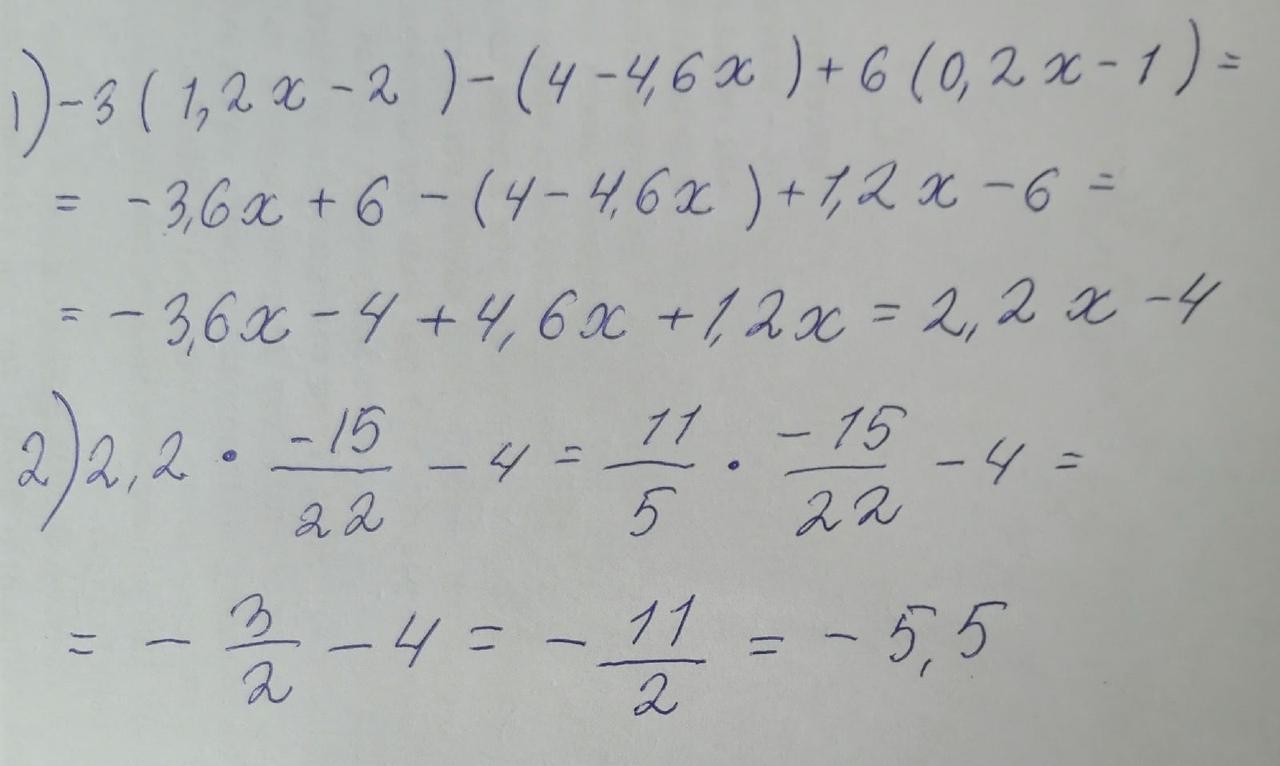 1) -3(1,2x-2)-(4-4,6x)+6(0,2x-1)=
= -3,6x+6-(4-4,6x)+1,2x-6=
= -3,6x-4+4,6x+1,2x=2,2x-4
2) 2,2 · \frac{-15}{22} - 4 = \frac{11}{5} · \frac{-15}{22} - 4 =
= - \frac{3}{2} - 4 = - \frac{11}{2} = -5,5